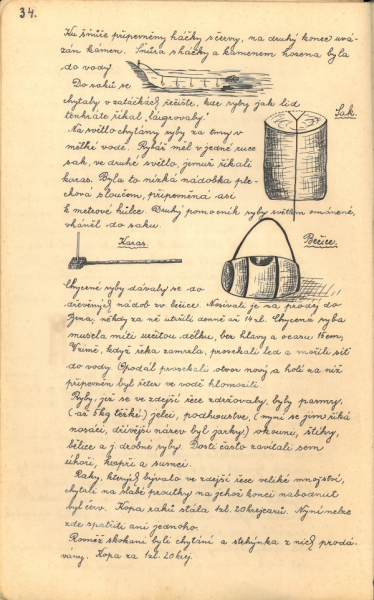 34.
Ku šňůře připevněny háčky s červy, na druhý konec uvá-
zán kámen. Šnůra s háčky a kamenem hozena byla
do vody.
Do saků se
chytaly v zatáčkách řečiště, kde ryby jak lid
tenkráte říkal
Sak.
Na světlo chytány ryby za tmy v
mělké vodě. Rybář měl v jedné ruce
sak, ve druhé světlo, jemuž říkali
karas. Byla to nízká nádobka ple-
chová s loučem, připevněná asi
k metrové hůlce. Druhý pomocník ryby světlem omámené,
vháněl do saku.
Karas.
Bečice.
Chycené ryby dávaly se do
dřevěných nádob zv. bečice. Nosívali je na prodej do
Brna, někdy za ně utržili denně až 14 zl. Chycená ryba
musela míti určitou délku, bez hlavy a ocasu 16 cm.
V zimě, když řeka zamrzla, prosekali led a vnořili síť
do vody. Opodál prosekali otvor nový a holí na níž
připevněn byl řetez ve vodě hlomozili.
Ryby, jež se ve zdejší řece zdržovaly, byly parmy,
(až 5 kg těžké) jelci, podhoustve, (nyní se jim říká
nosáči, dřívější název byl žarky) okouni, štiky,
bělice a j. drobné ryby. Dosti často zavítali sem
úhoři, kapři a sumci.
Raky, kterých bývalo ve zdejší řece veliké množství,
chytali na slabé proutky na jehož konci nabodnut
byl červ. Kopa raků stála 1 zl. 20 krejcarů. Nyní nelze
zde spatřiti ani jednoho.
Rovněž skokani byli chytáni a stehýnka z nich prodá-
vány. Kopa za 1 zl. 20 krej.